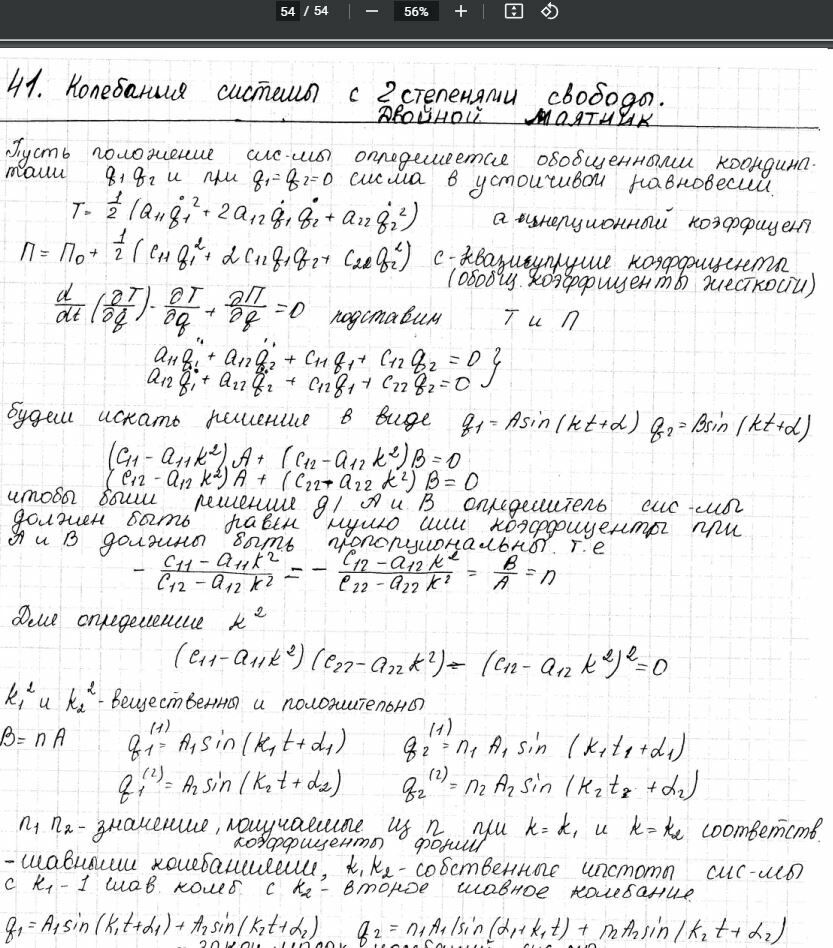 54 / 54
56%
41. Колебания системы с 2 степенями свободы.
Двойной маятник
Пусть положение сис-мы определяется обобщенными координа-
тами q₁ q₂ и при q₁=q₂=0 сисма в устойчивой равновесии.
T= 1/2 (a₁₁q̇₁² + 2a₁₂q̇₁q̇₂ + a₂₂q̇₂²) a инерционный коэффициент
П = П₀ + 1/2 (c₁₁q₁² + 2c₁₂q₁q₂ + c₂₂q₂²) c - квазиупругие коэффициенты
(обобщ. коэффициенты жесткости)
d/dt (∂T/∂q̇) - ∂T/∂q + ∂П/∂q = 0 подставим T и П
a₁₁q̈₁ + a₁₂q̈₂ + c₁₁q₁ + c₁₂q₂ = 0 }
a₁₂q̈₁ + a₂₂q̈₂ + c₁₂q₁ + c₂₂q₂ = 0
будем искать решение в виде q₁ = Asin(kt+α) q₂ = Bsin(kt+α)
(c₁₁ - a₁₁k²)A + (c₁₂ - a₁₂k²)B = 0
(c₁₂ - a₁₂k²)A + (c₂₂ - a₂₂k²)B = 0
чтобы были решение д/ A и B определитель сис-мы
должен быть равен нулю или коэффициенты при
A и B должны быть пропорциональны. т.е
- (c₁₁ - a₁₁k²)/(c₁₂ - a₁₂k²) = - (c₁₂ - a₁₂k²)/(c₂₂ - a₂₂k²) = B/A = n
Для определение k²
(c₁₁ - a₁₁k²)(c₂₂ - a₂₂k²) - (c₁₂ - a₁₂k²)² = 0
k₁² и k₂² - вещественны и положительны
B = nA q₁⁽¹⁾ = A₁sin(k₁t+α₁) q₂⁽¹⁾ = n₁A₁sin (k₁t₁+α₁)
q₁⁽²⁾ = A₂sin(k₂t+α₂) q₂⁽²⁾ = n₂A₂sin(k₂t₂ +α₂)
n₁ n₂ - значение, получаемые из n при k=k₁ и k=k₂ соответств.
коэффициенты формы
- главными колебаниями, k₁k₂ - собственные частоты сис-мы
с k₁ - 1 глав. колеб с k₂ - второе главное колебание.
q₁ = A₁sin(k₁t+α₁) + A₂sin(k₂t+α₂) q₂ = n₁A₁(sin(α₁+k₁t) + n₂A₂sin(k₂t+α₂)